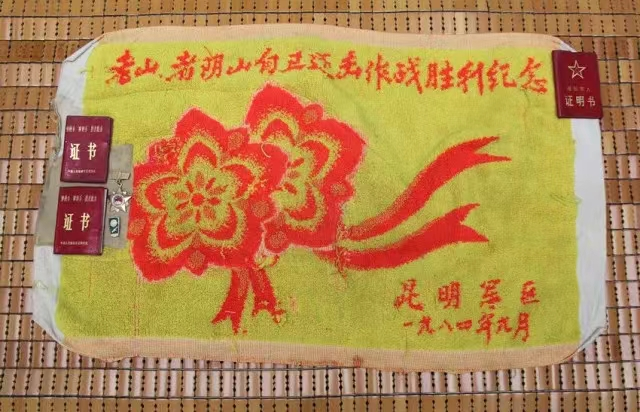 老山、者阴山自卫还击作战胜利纪念
证明书
证书
证书
昆明军区
一九八四年九月